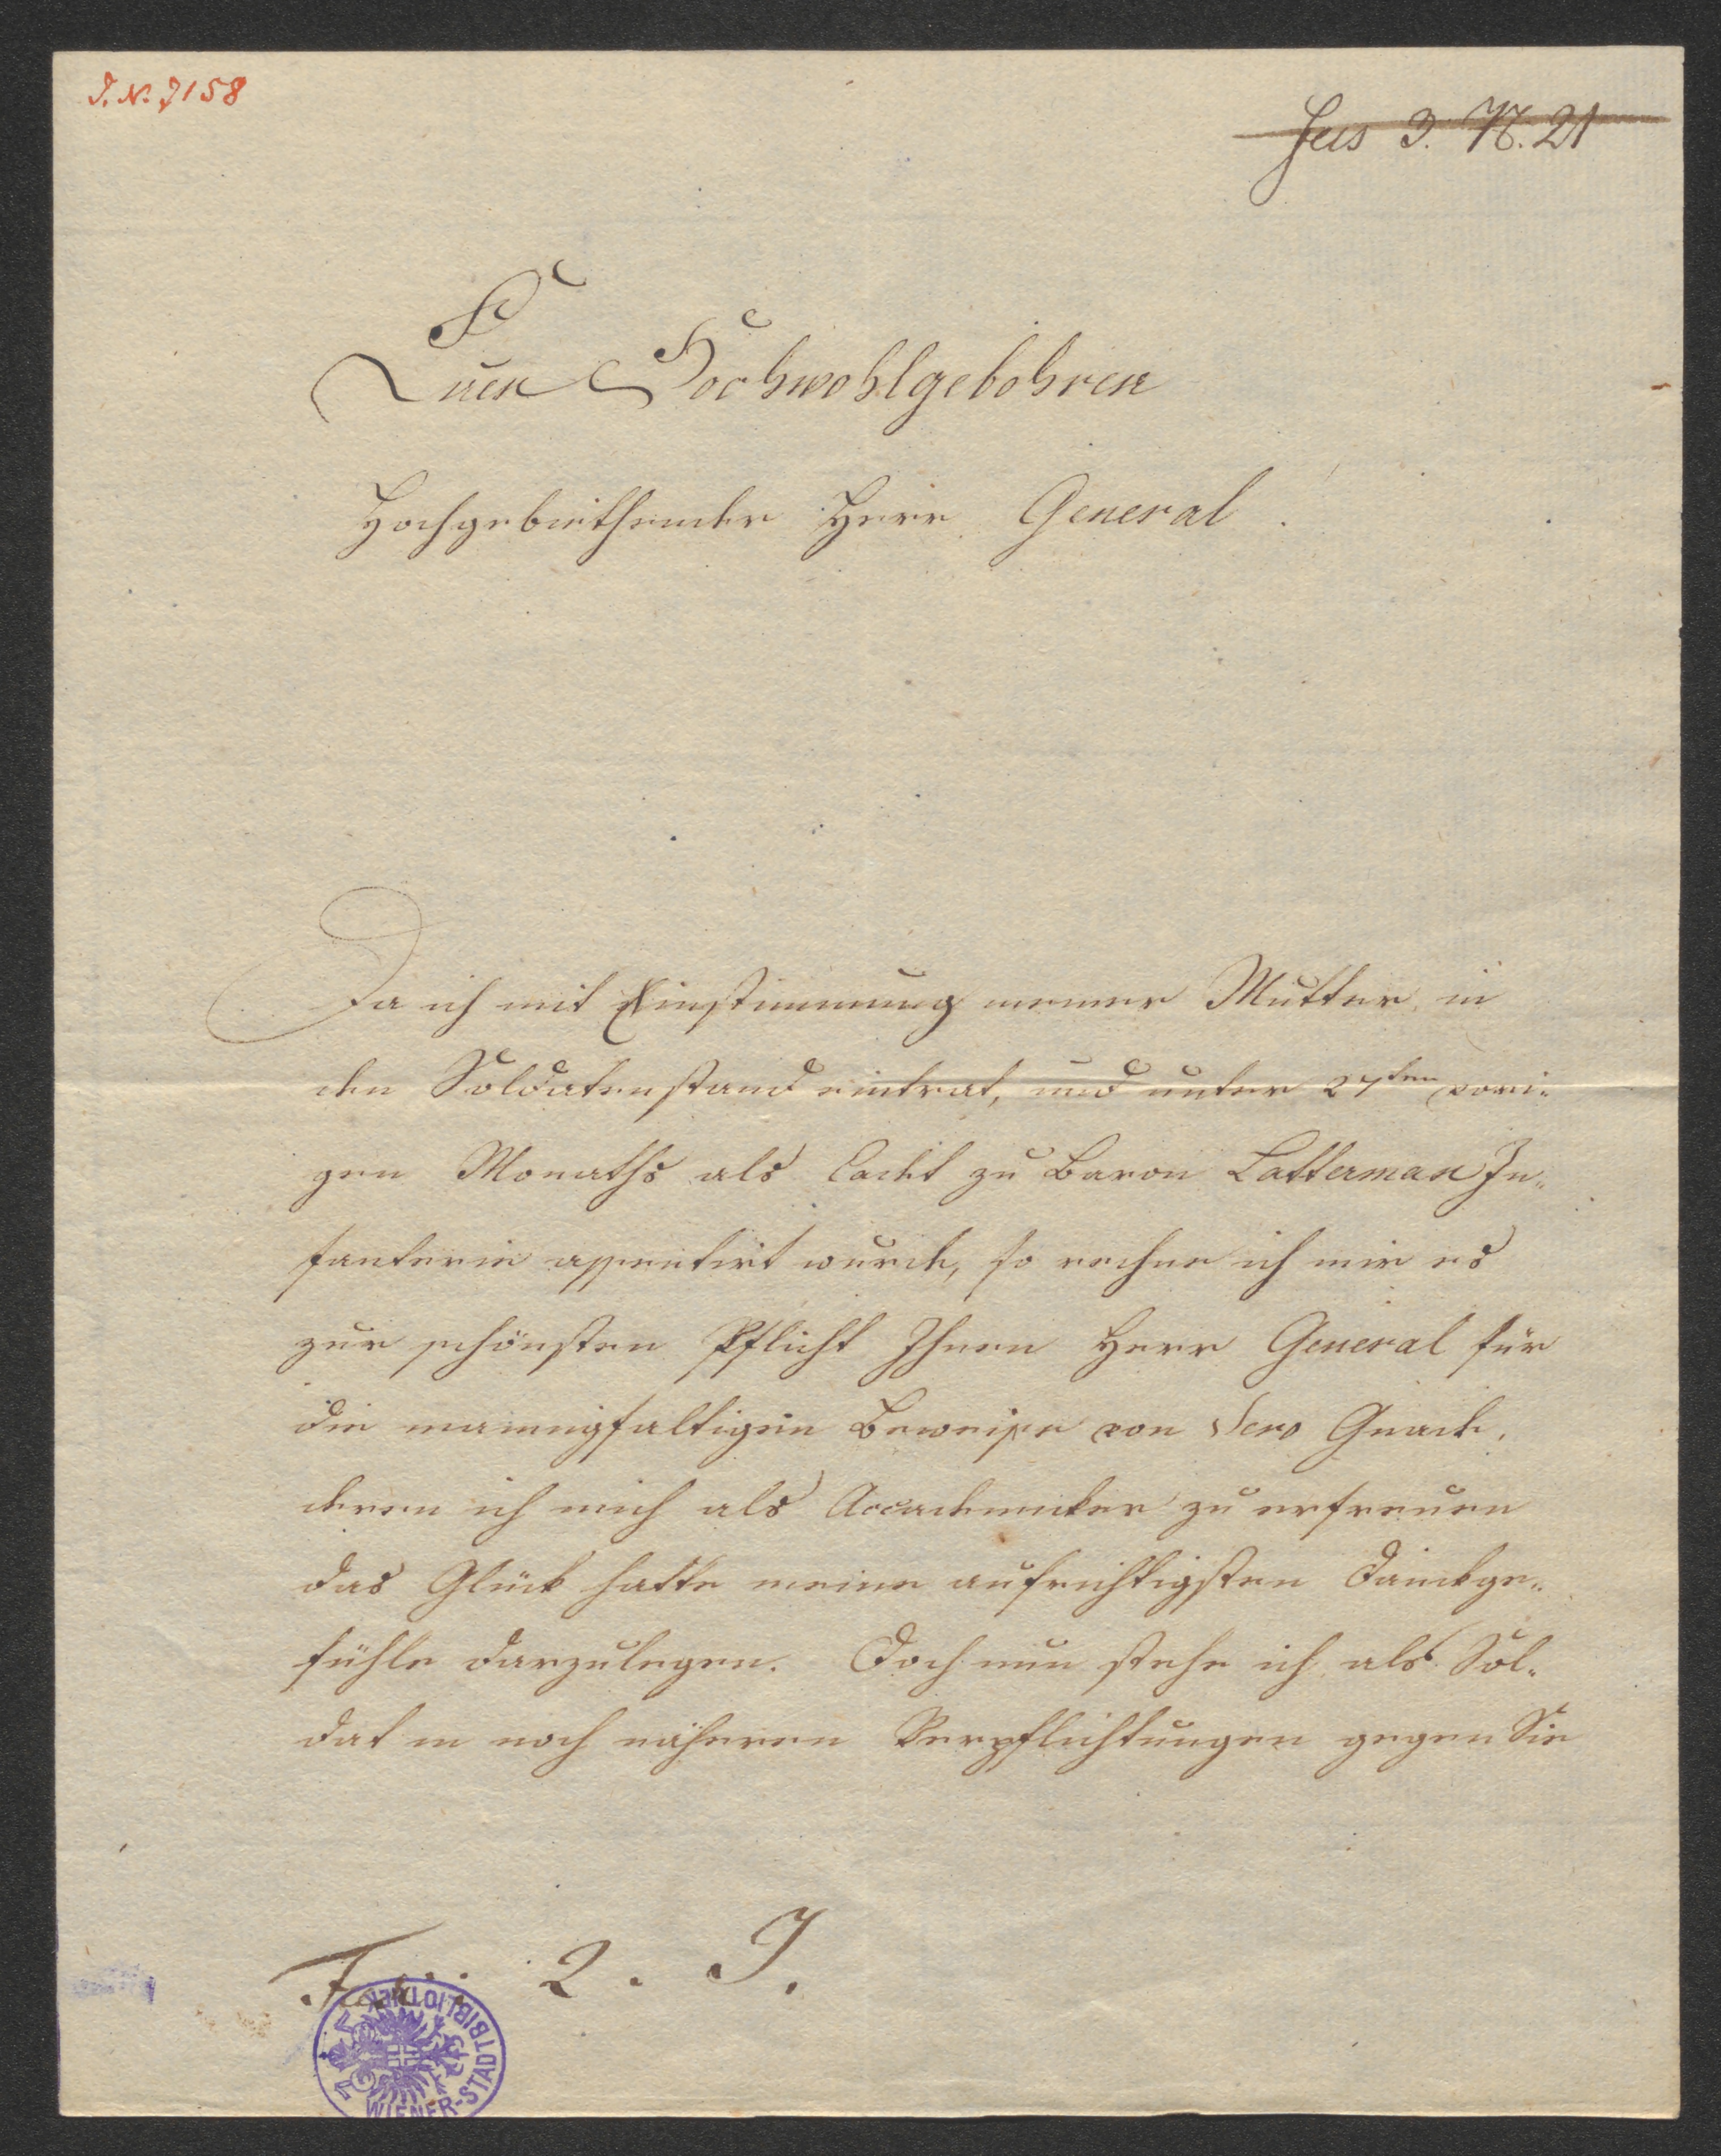 I.N. 7158
Fas 3. N. 21
Euer Hochwohlgebohren
Hochgebiethender Herr General.
Da ich mit Einstimmung meiner Mutter in
den Soldatenstand eintrat, und unter 27ten vori-
gen Monaths als Cadet zu Baron Latterman In-
fanterie assentirt wurde, so rechne ich mir es
zur schönsten Pflicht Ihnen Herr General für
die mannigfaltigen Beweise von Dero Gnade,
deren ich mich als Accademiker zu erfreuen
das Glück hatte meine aufrichtigsten Danckge-
fühle darzulegen. Doch nun stehe ich als Sol-
dat in noch näheren Verpflichtungen gegen Sie
2. J.
WIENER-STADTBIBLIOTHEK